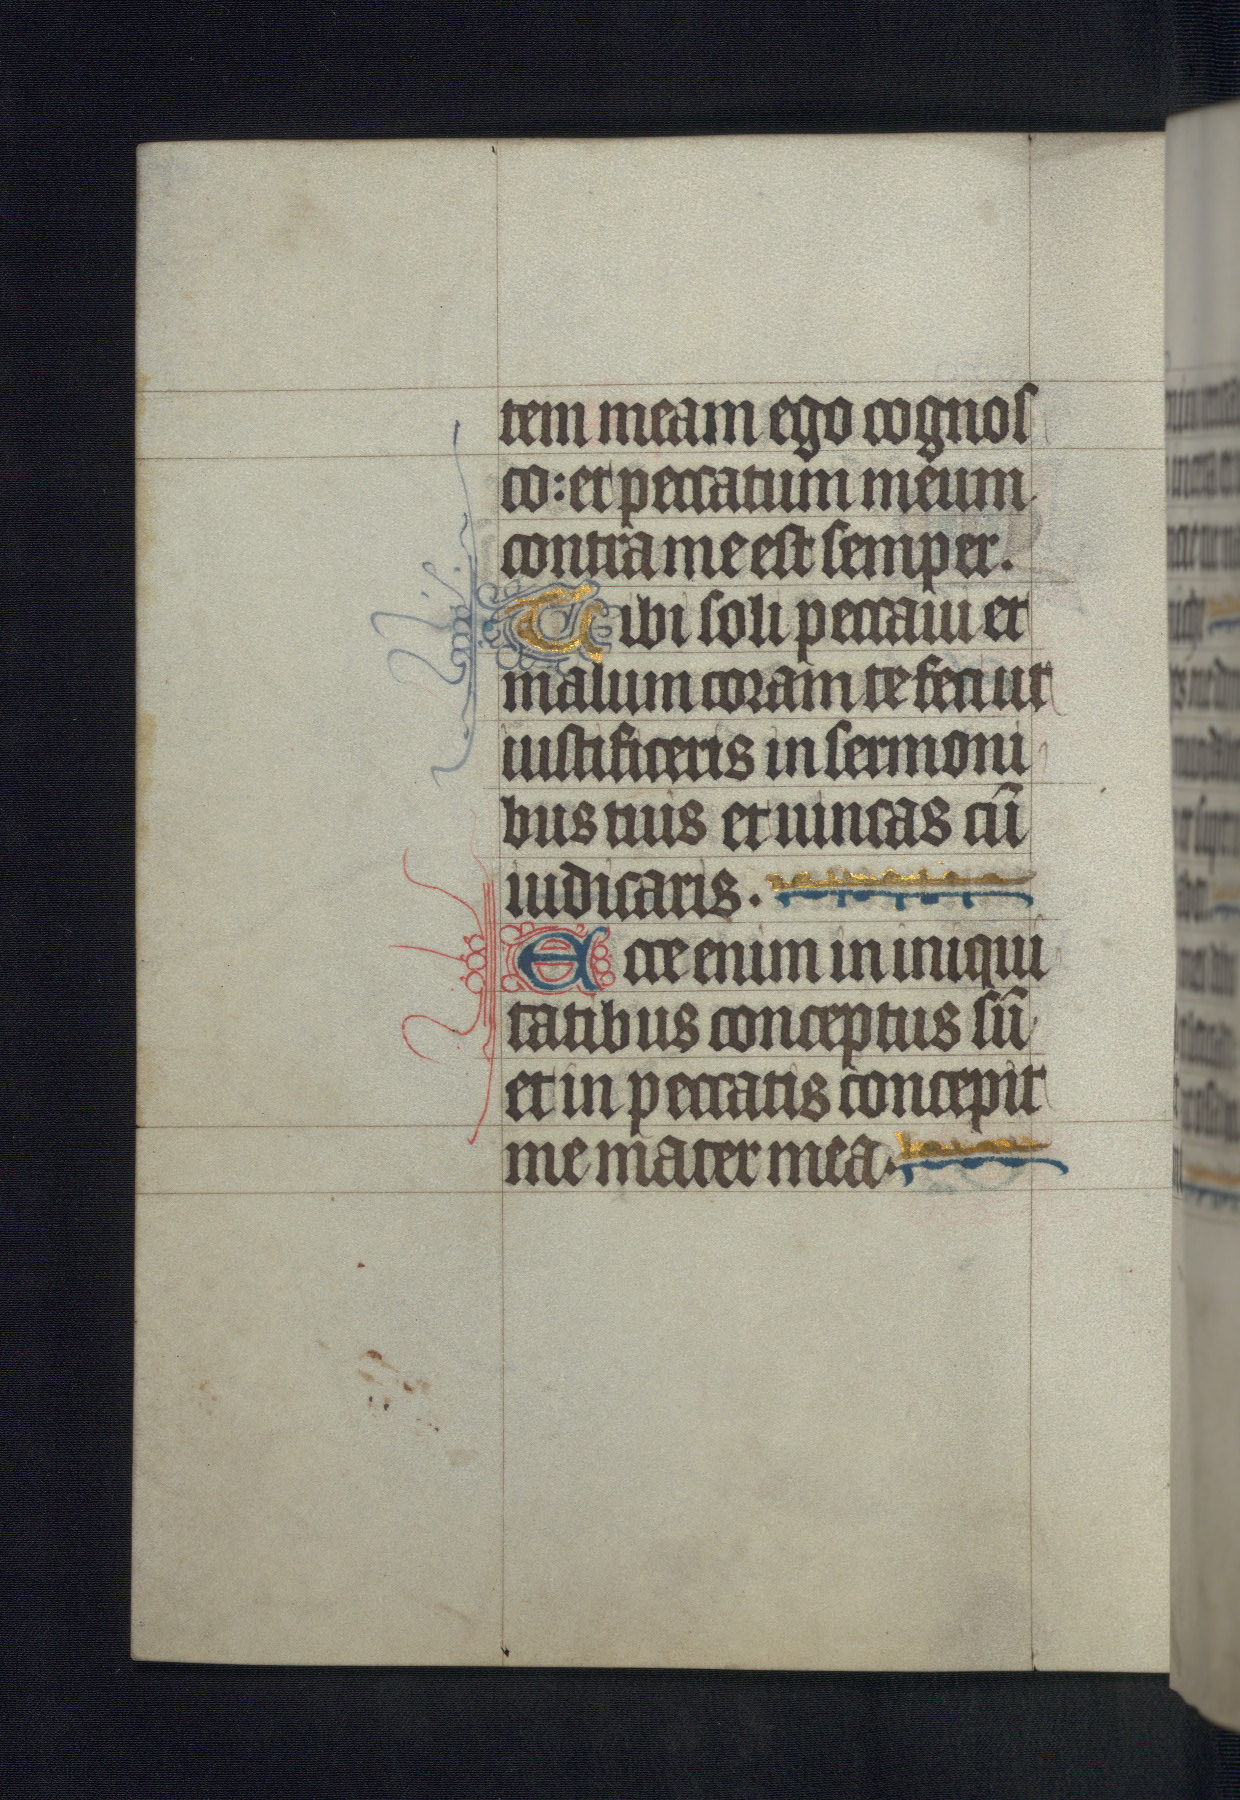 tem meam ego cognos
co: et peccatum meum
contra me est semper.
Tibi soli peccaui et
malum coram te feci ut
iustificeris in sermoni
bus tuis et uincas cū
iudicaris.
Ecce enim in iniqui
tatibus conceptus sū
et in peccatis concepit
me mater mea.